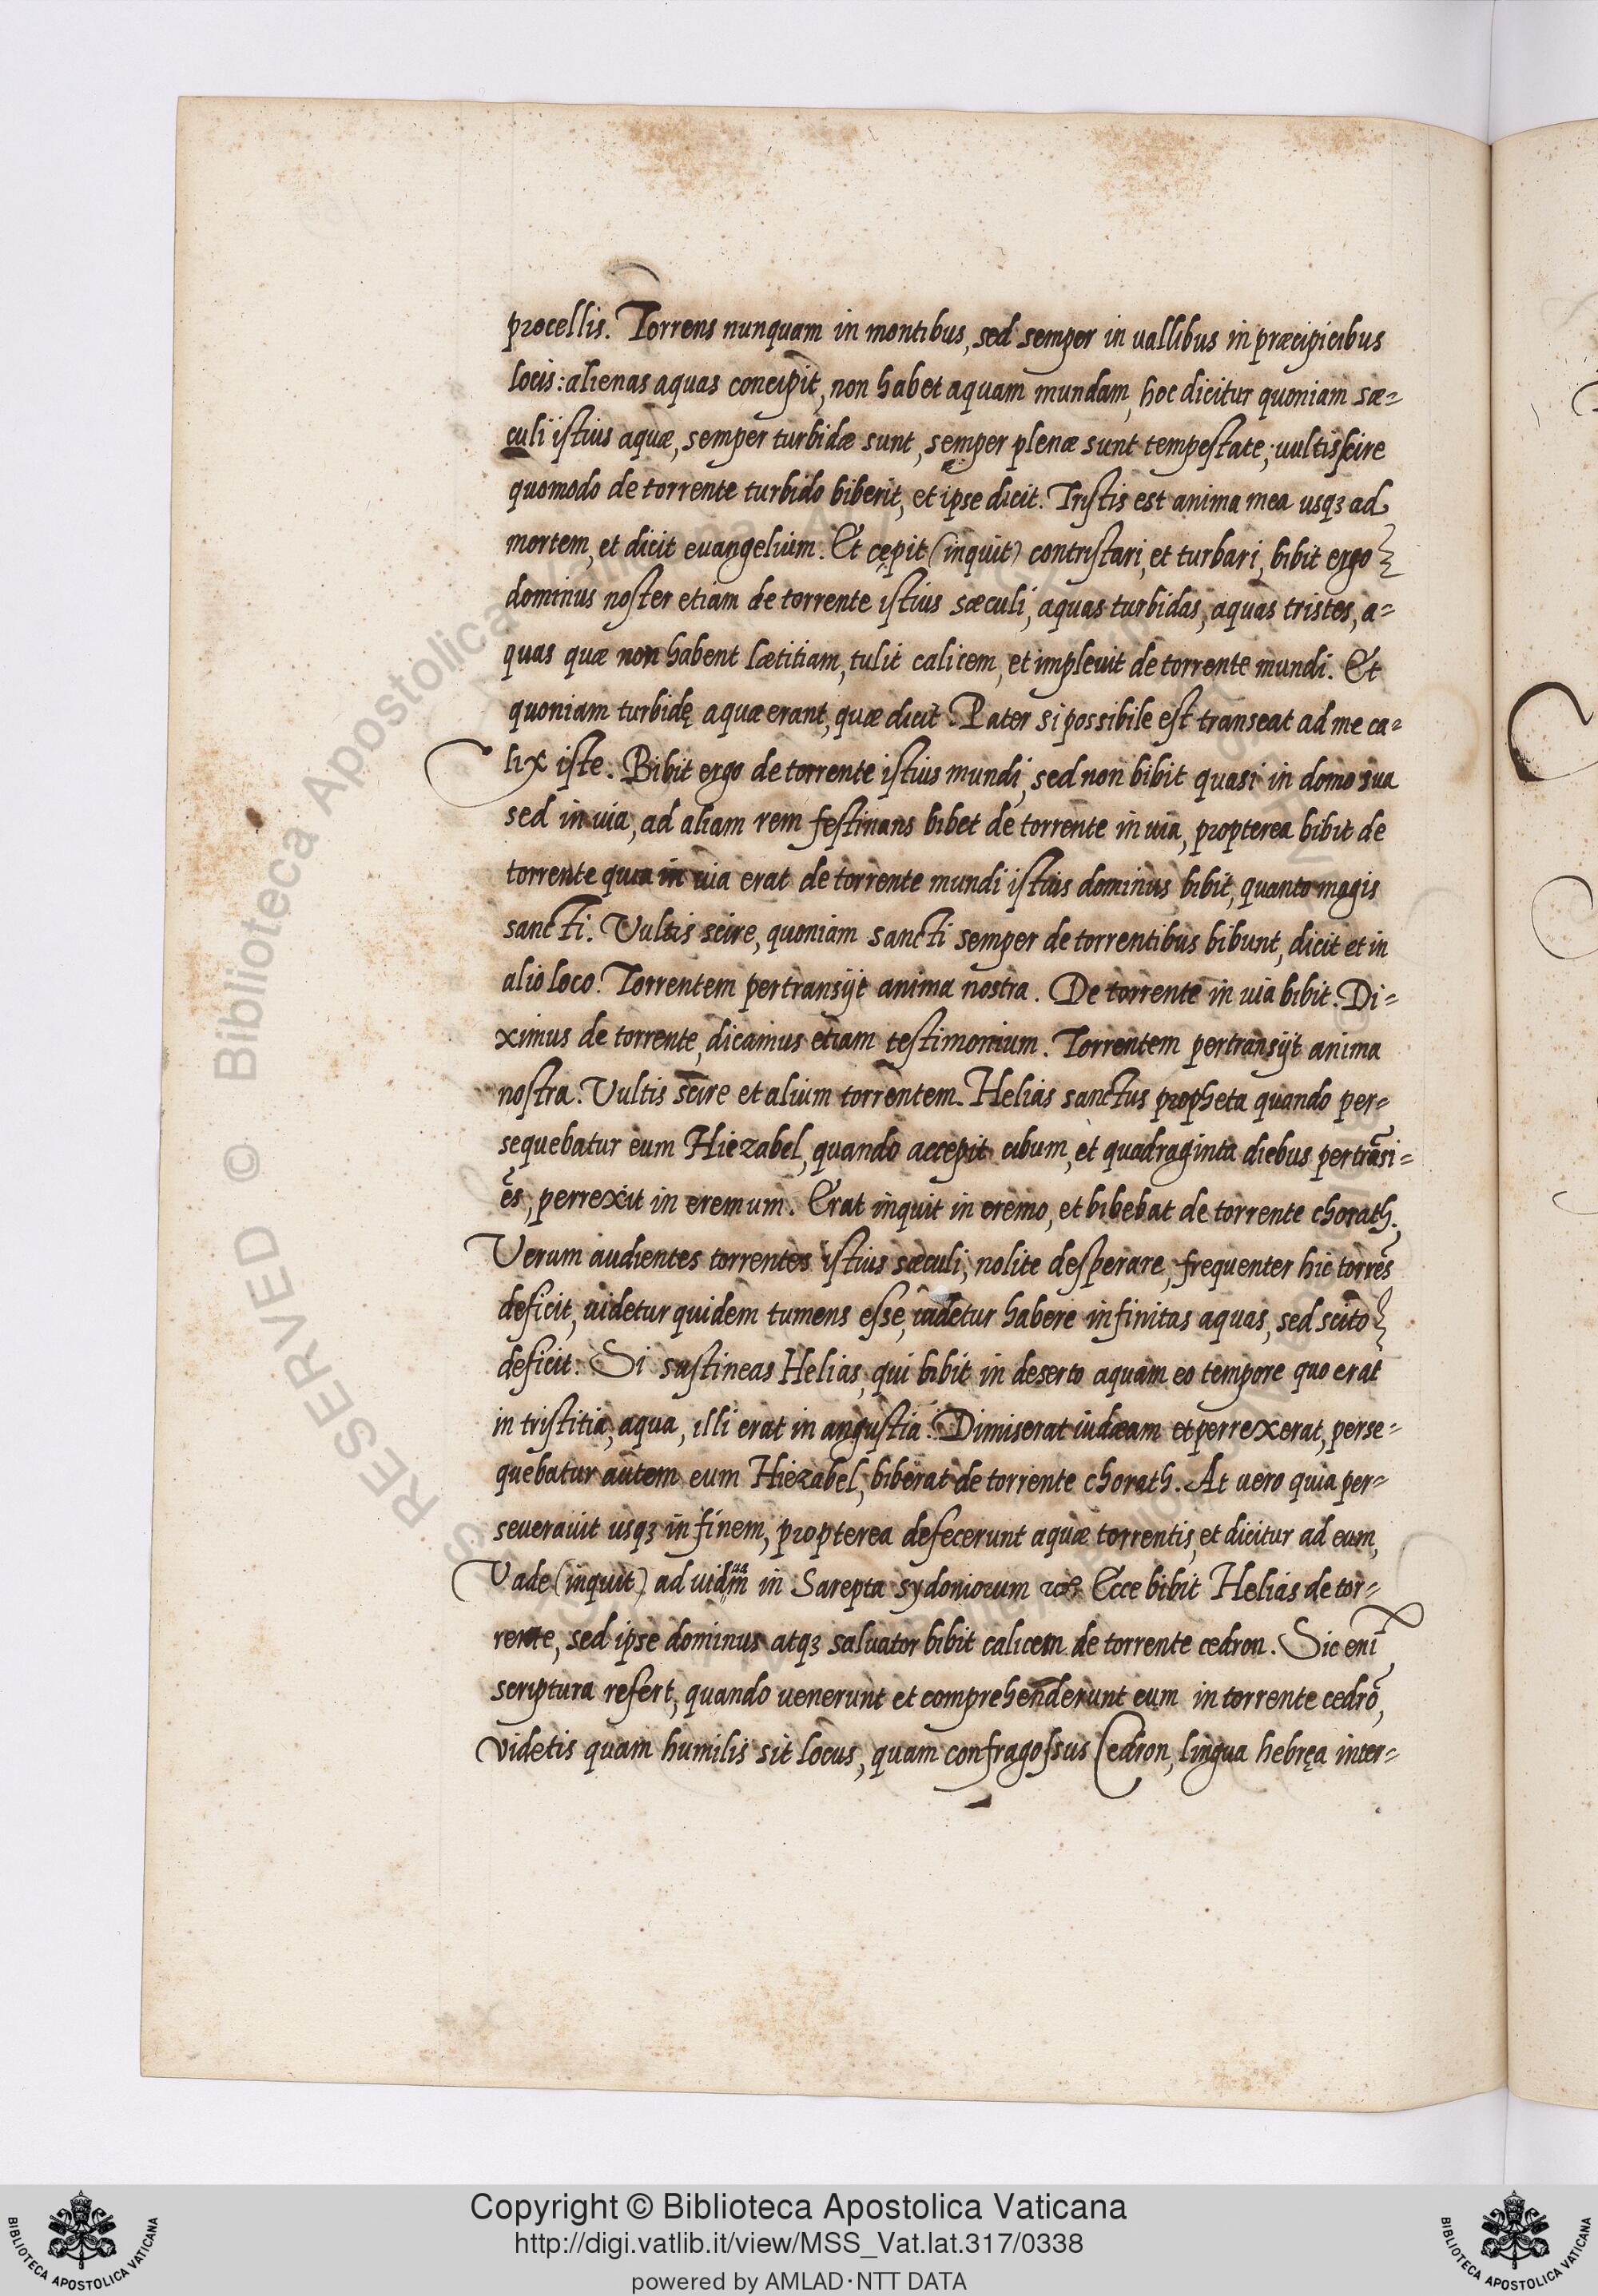 procellis. Torrens nunquam in montibus, sed semper in vallibus in præcipicibus
locis: alienas aquas concipit, non habet aquam mundam, hoc dicitur quoniam sæ=
culi istius aquæ, semper turbidæ sunt, semper plenæ sunt tempestate; vultis scire
quomodo de torrente turbido biberit, et ipse dicit. Tristis est anima mea usqꝫ ad
mortem, et dicit euangelium. Et cępit (inquit) contristari, et turbari, bibit ergo
dominus noster etiam de torrente istius sæculi, aquas turbidas, aquas tristes, a=
quas quæ non habent lætitiam, tulit calicem, et implevit de torrente mundi. Et
quoniam turbidę aquæ erant, quæ dicit. Pater si possibile est transeat ad me ca=
lix iste. Bibit ergo de torrente istius mundi, sed non bibit quasi in domo sua
sed in via, ad aliam rem festinans bibet de torrente in via, propterea bibit de
torrente qua in via erat de torrente mundi istius dominus bibit, quanto magis
sancti. Vultis scire, quoniam sancti semper de torrentibus bibunt, dicit et in
alio loco. Torrentem pertransijt anima nostra. De torrente in via bibit. Di=
ximus de torrente, dicamus etiam testimonium. Torrentem pertransijt anima
nostra. Vultis scire et alium torrentem. Helias sanctus propheta quando per=
sequebatur eum Hiezabel, quando accepit cibum, et quadraginta diebus pertrãsi=
ẽs, perrexit in eremum. Erat inquit in eremo, et bibebat de torrente chorath.
Verum audientes torrentes istius sæculi, nolite desperare, frequenter hic torrẽs
deficit, videtur quidem tumens esse, videtur habere infinitas aquas, sed scito
deficit. Si sustineas Helias, qui bibit in deserto aquam eo tempore quo erat
in tristitia, aqua, illi erat in angustia. Dimiserat iudæam et perrexerat, perse=
quebatur autem eum Hiezabel, biberat de torrente chorath. At vero quia per=
severavit usqꝫ in finem, propterea defecerunt aquæ torrentis, et dicitur ad eum,
Vade (inquit) ad viduam in Sarepta sydoniorum Ecce bibit Helias de tor=
rente, sed ipse dominus atqꝫ salvator bibit calicem de torrente cedron. Sic enĩ
scriptura refert, quando venerunt et comprehenderunt eum in torrente cedrõ,
Videtis quam humilis sit locus, quam confragossus Cedron, lingua hebręa inter=
RESERVED © Biblioteca Apostolica Vaticana
Copyright © Biblioteca Apostolica Vaticana
http://digi.vatlib.it/view/MSS_Vat.lat.317/0338
powered by AMLAD·NTT DATA
BIBLIOTECA APOSTOLICA VATICANA
BIBLIOTECA APOSTOLICA VATICANA